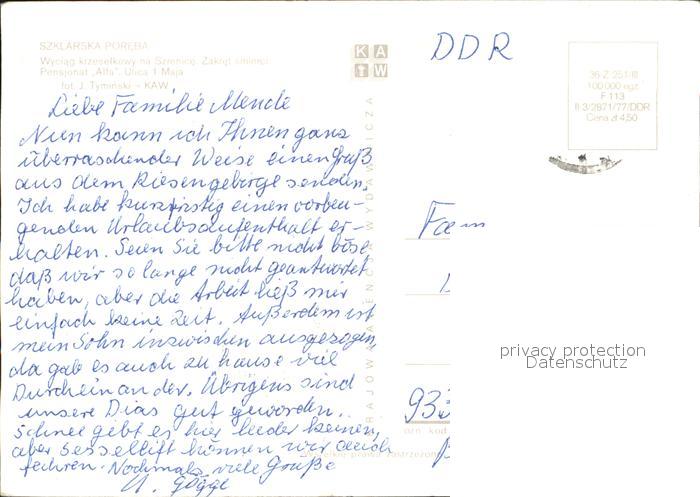 SZKLARSKA PORĘBA
Wyciąg krzesełkowy na Szrenicę. Zakręt śmierci.
Pensjonat „Alfa". Ulica 1 Maja
fot. J. Tymiński - KAW
KAW
DDR
36-Z 251/III
100 000 egz.
F 113
II 3/2871/77/DDR
Cena zł 4,50
Liebe Familie Mende
Nun kann ich Ihnen ganz
überraschender Weise einen Gruß
aus dem Riesengebirge senden.
Ich habe kurzfristig einen vorbeu-
genden Urlaubsaufenthalt er-
halten. Seien Sie bitte nicht böse
daß wir so lange nicht geantwortet
haben, aber die Arbeit ließ mir
einfach keine Zeit. Außerdem ist
mein Sohn inzwischen ausgezogen,
da gab es auch zu hause viel
Durcheinander. Übrigens sind
unsere Dias gut geworden.
Schnee gibt es hier leider keinen,
aber Sessellift können wir
fahren. Nochmals viele Grüße
KRAJOWA AGENCJA WYDAWNICZA
Fam
93
privacy protection
Datenschutz